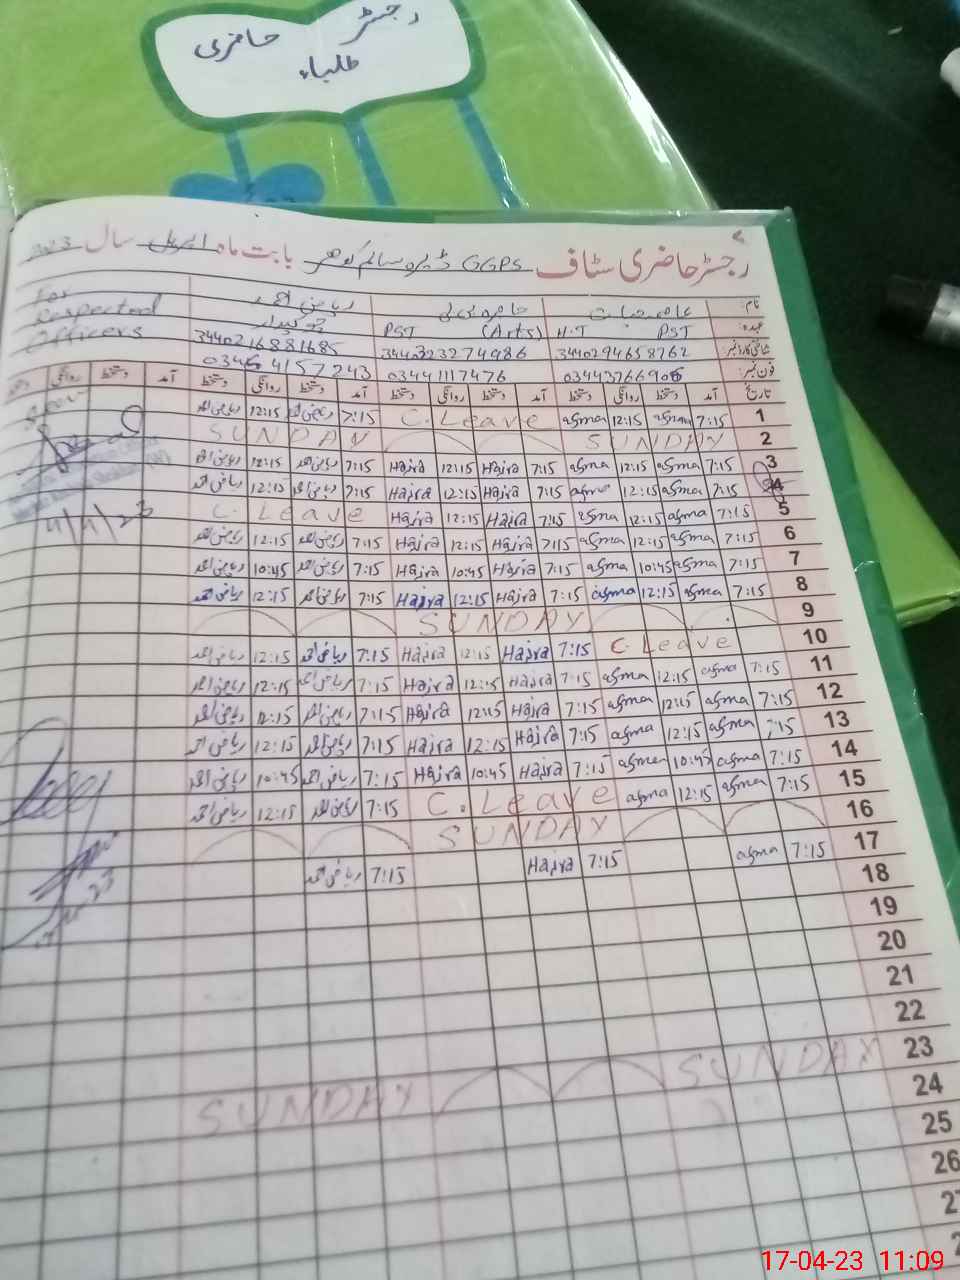 رجسٹر حاضری
طلباء
رجسٹر حاضری سٹاف GGPS بابت ماہ اپریل سال 2023
نام: عاصمہ حیات ریاض احمد For
عہدہ: H.T PST PST (Arts) چوکیدار Respected
شناختی کارڈ نمبر: 3440294658762 3440323274986 3440216881685 Officers
فون نمبر: 03443766908 03441117476 03464157243
تاریخ آمد دستخط روانگی دستخط آمد دستخط روانگی دستخط آمد دستخط روانگی دستخط آمد دستخط روانگی دستخط
1 7:15 asma 12:15 asma C. Leave 7:15 ریاض احمد 12:15 ریاض احمد
2 SUNDAY SUNDAY
3 7:15 asma 12:15 asma 7:15 Hajra 12:15 Hajra 7:15 ریاض احمد 12:15 ریاض احمد
4 7:15 asma 12:15 asma 7:15 Hajra 12:15 Hajra 7:15 ریاض احمد 12:15 ریاض احمد
5 7:15 asma 12:15 asma 7:15 Hajra 12:15 Hajra C. Leave
4/4/23
6 7:15 asma 12:15 asma 7:15 Hajra 12:15 Hajra 7:15 ریاض احمد 12:15 ریاض احمد
7 7:15 asma 10:45 asma 7:15 Hajra 10:45 Hajra 7:15 ریاض احمد 10:45 ریاض احمد
8 7:15 asma 12:15 asma 7:15 Hajra 12:15 Hajra 7:15 ریاض احمد 12:15 ریاض احمد
9 SUNDAY
10 C. Leave 7:15 Hajra 12:15 Hajra 7:15 ریاض احمد 12:15 ریاض احمد
11 7:15 asma 12:15 asma 7:15 Hajra 12:15 Hajra 7:15 ریاض احمد 12:15 ریاض احمد
12 7:15 asma 12:15 asma 7:15 Hajra 12:15 Hajra 7:15 ریاض احمد 12:15 ریاض احمد
13 7:15 asma 12:15 asma 7:15 Hajra 12:15 Hajra 7:15 ریاض احمد 12:15 ریاض احمد
14 7:15 asma 10:45 asma 7:15 Hajra 10:45 Hajra 7:15 ریاض احمد 10:45 ریاض احمد
15 7:15 asma 12:15 asma C. Leave 7:15 ریاض احمد 12:15 ریاض احمد
16 SUNDAY
17 7:15 asma 7:15 Hajra 7:15 ریاض احمد
18
19
20
21
22
23 SUNDAY SUNDAY
24
25
26
17-04-23 11:09